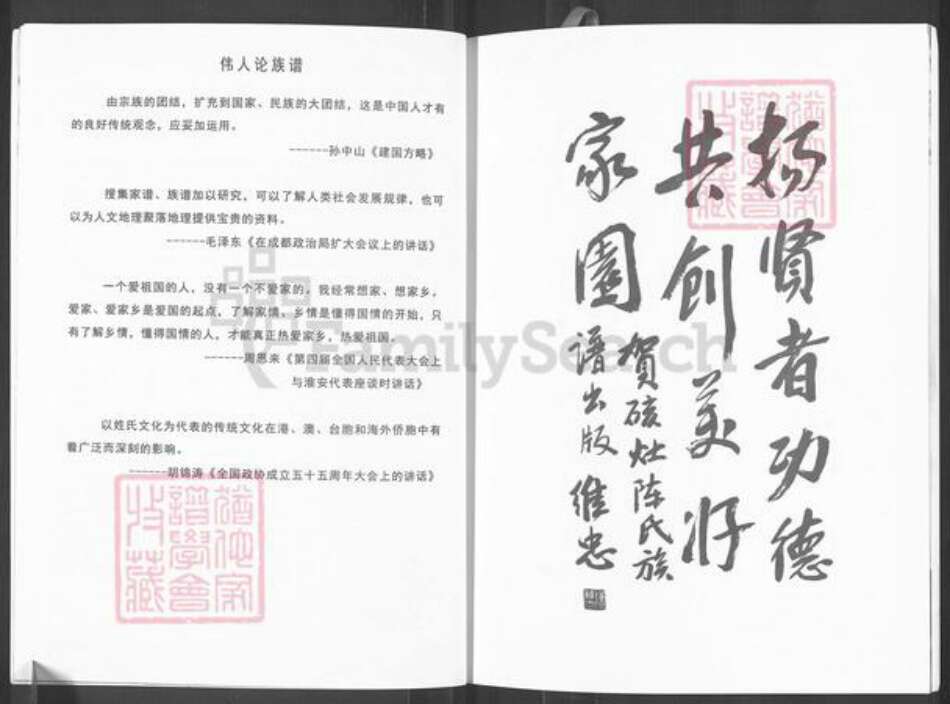 伟人论族谱
由宗族的团结，扩充到国家、民族的大团结，这是中国人才有
的良好传统观念，应妥加运用。
------孙中山《建国方略》
搜集家谱、族谱加以研究，可以了解人类社会发展规律，也可
以为人文地理聚落地理提供宝贵的资料。
------毛泽东《在成都政治局扩大会议上的讲话》
一个爱祖国的人，没有一个不爱家的，我经常想家、想家乡，
爱家、爱家乡是爱国的起点，了解家情、乡情是懂得国情的开始，只
有了解乡情，懂得国情的人，才能真正热爱家乡，热爱祖国。
------周恩来《第四届全国人民代表大会上
与淮安代表座谈时讲话》
以姓氏文化为代表的传统文化在港、澳、台胞和海外侨胞中有
着广泛而深刻的影响。
------胡锦涛《全国政协成立五十五周年大会上的讲话》
譜學會
收藏
FamilySearch
扬贤者功德
共创美好
家園
賀硋灶陈氏族
谱出版 維忠
譜學會
收藏